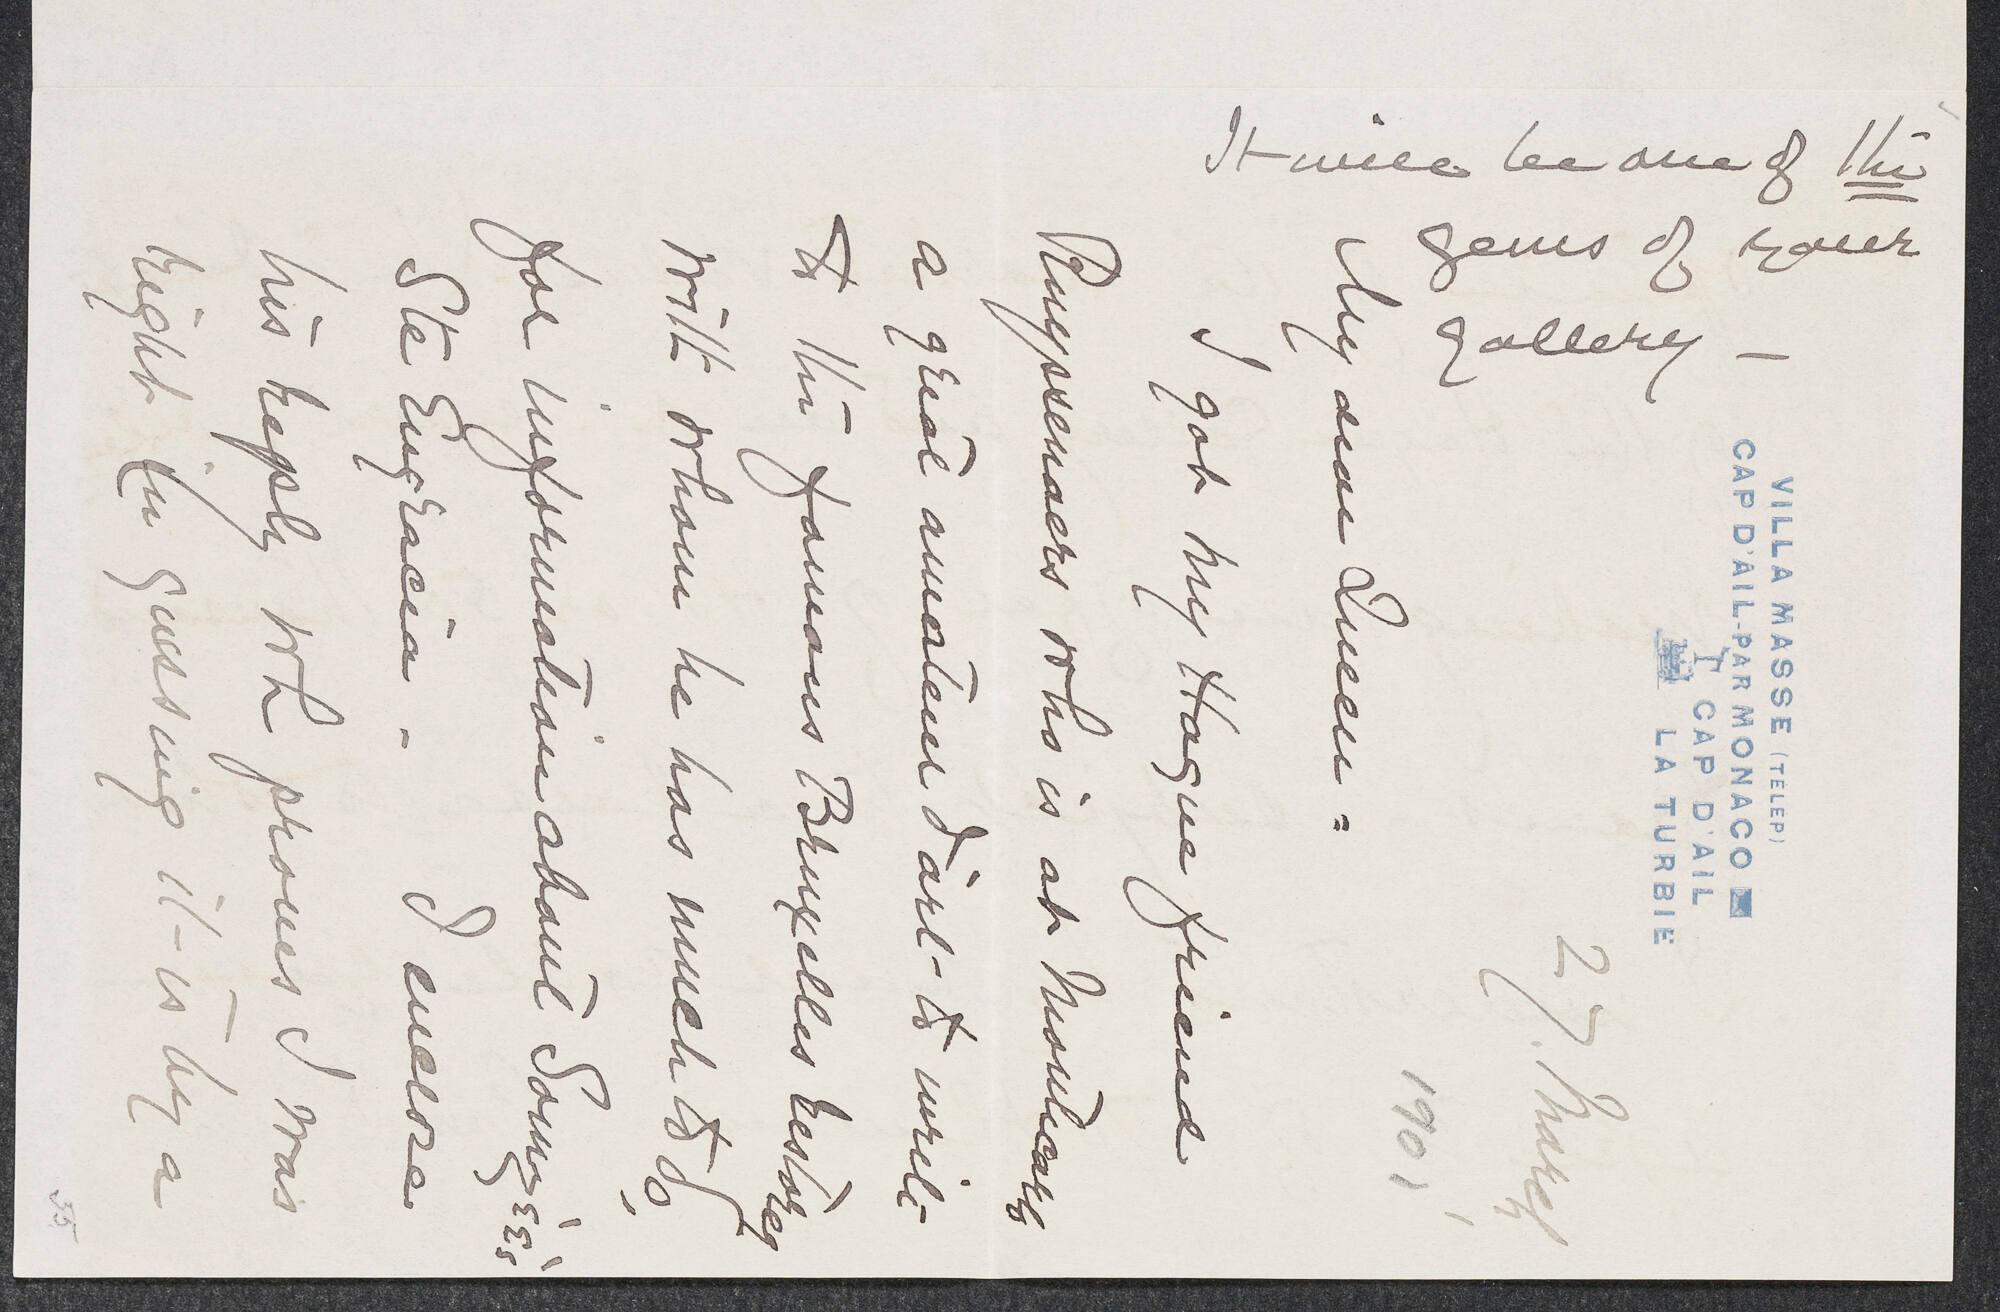 It will be one of the
gems of your
gallery –
VILLA MASSE (TÉLEP)
CAP D'AIL-PAR MONACO
T CAP D'AIL
LA TURBIE
27. March
1901
My dear Queen =
I got my Hague friend
Ruyssenaers who is at Montecarlo
a great amateur d'art to write
to the famous Bruxelles restorer
with whom he has much to do,
for information about
Ste Engracia – I enclose
his reply wh proves I was
right in guessing it is by a
55